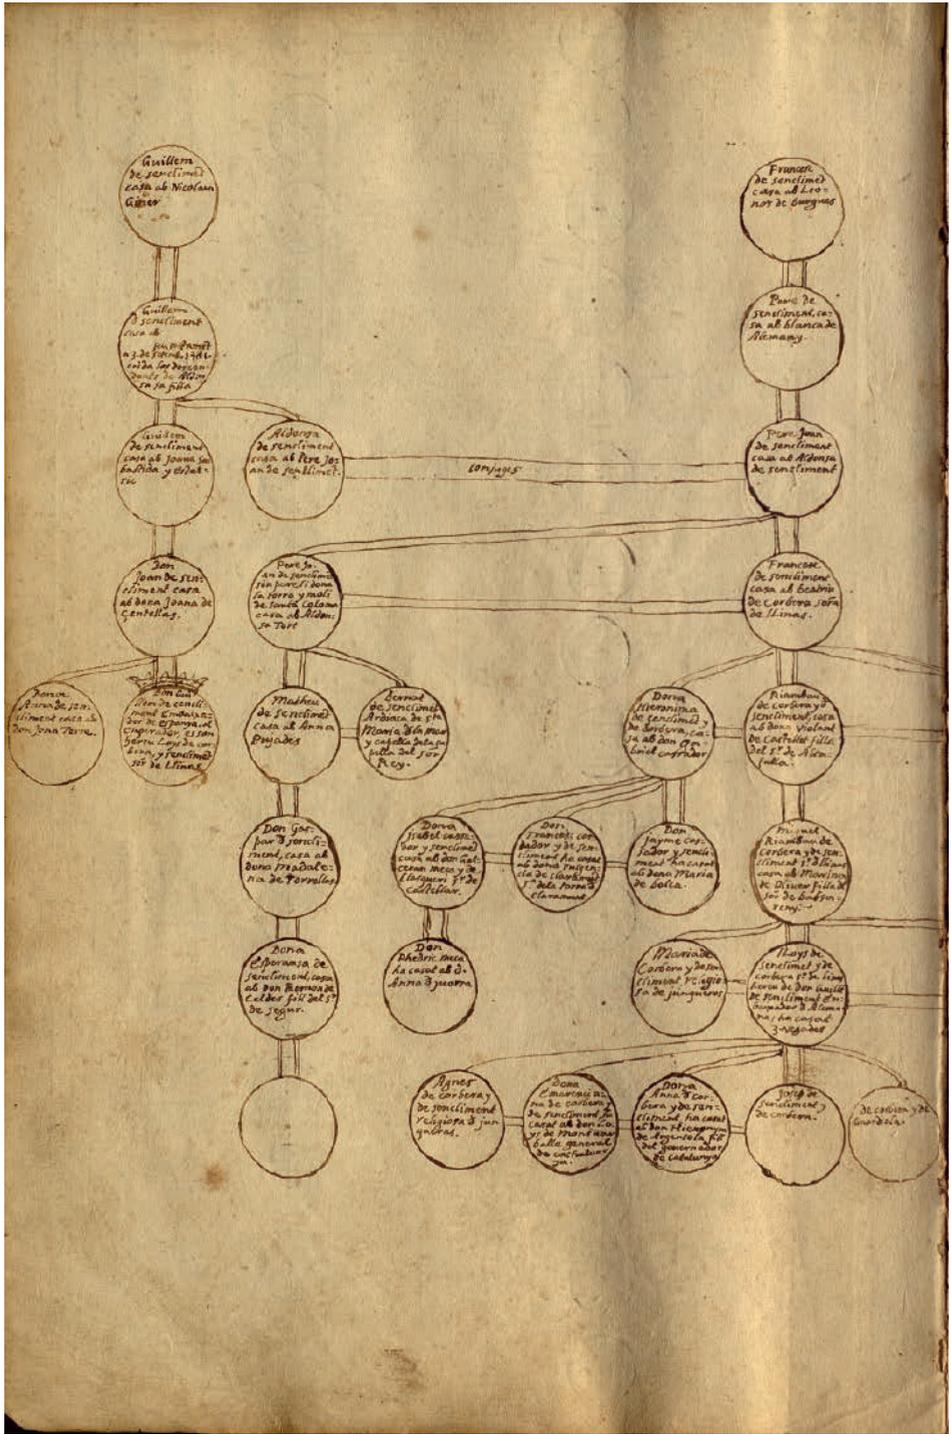 Guillem
de sentimet
casa ab Nicolaua
Giner
Guillem
d sentiment
casa ab
a 3. de
sa filla
Guillem
de sentiment
casa ab Joana
bastida y
Aldonsa
de sentiment
casa ab Pere Jo-
an de sentiment.
conjuges
Francesc
de sentimet
casa ab Leo-
nor de burgues
Pere de
sentiment, ca-
sa ab blanca de
Alemany.
Pere Joan
de sentiment
casa ab Aldonsa
de sentiment
Don
Joan de sen-
timent casa
ab dona Joana de
Centellas.
Pere Jo-
an de sentimet
la torre y moli
de santa Coloma
casa ab Aldon-
sa Tort
Francesc
de sentiment
casa ab beatriu
de Corbera
de Llinas.
Dona
Anna de sen-
timent casa ab
don Joan Terre.
Don Gui-
llem de senti-
ment Embaxa-
dor de espanya, al
emperador,
hereu Loys de cor-
bera, y sentimet
sor de Llinas
Matheu
de sentimet
casa ab Anna
Pujades
Bernat
de sentimet
Ardiaca de sta
Maria de la mar
y capella de la ca-
pella del sor
Rey.
Dona
Hieronima
de sentimet y
de Corbera, ca-
sa ab don Ga-
briel cassador
Riambau
de corbera y d
sentiment, casa
ab dona Violant
de Castellet filla
del sr de
Don Gas-
par d senti-
ment, casa ab
dona Madale-
na de Torrellas
Dona
Isabel cassa-
dor y sentimet
casa ab don Gal-
ceran meca y de
Castellar.
Don
Francesc cas-
sador y de sen-
timent ha casat
ab dona
la de claramunt
sr de la torre d
claramunt
Don
Jayme cas-
sador y senti-
ment ha casat
ab dona Maria
de bolea.
Miquel
Riambau de
corbera y de sen-
timent sr d Llinas
casa ab Mariana
de Oliver filla del
sor de
Dona
Esperansa de
sentiment, casa
ab don Ramon de
Calders fill del sr
de segur.
Don
Phedric meca
ha casat ab d.
Anna d
Maria de
Corbera y de sen-
timent religio-
sa de junqueres
Lloys de
sentimet y de
corbera sr de Llinas
hereu de don Guillem
de sentiment em-
baxador d Alema-
nia, ha casat
3 vegades
Agnes
de corbera y
de sentiment
religiosa d jun-
queras.
Dona
de corbera y
de sentiment
casat ab don Lo-
ys de
balle general
de
Dona
Anna d cor-
bera y de sen-
timent, ha casat
ab don Hieronym
de Argensola fill
del governador
de Catalunya
Josep de
sentiment y
de corbera.
de corbera y de